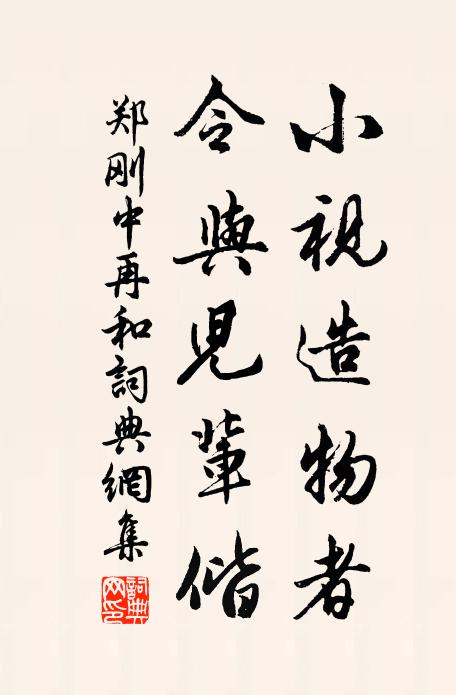 小視造物者
令與兒輩偕
郑刚中再和詞典網集
詞典网印